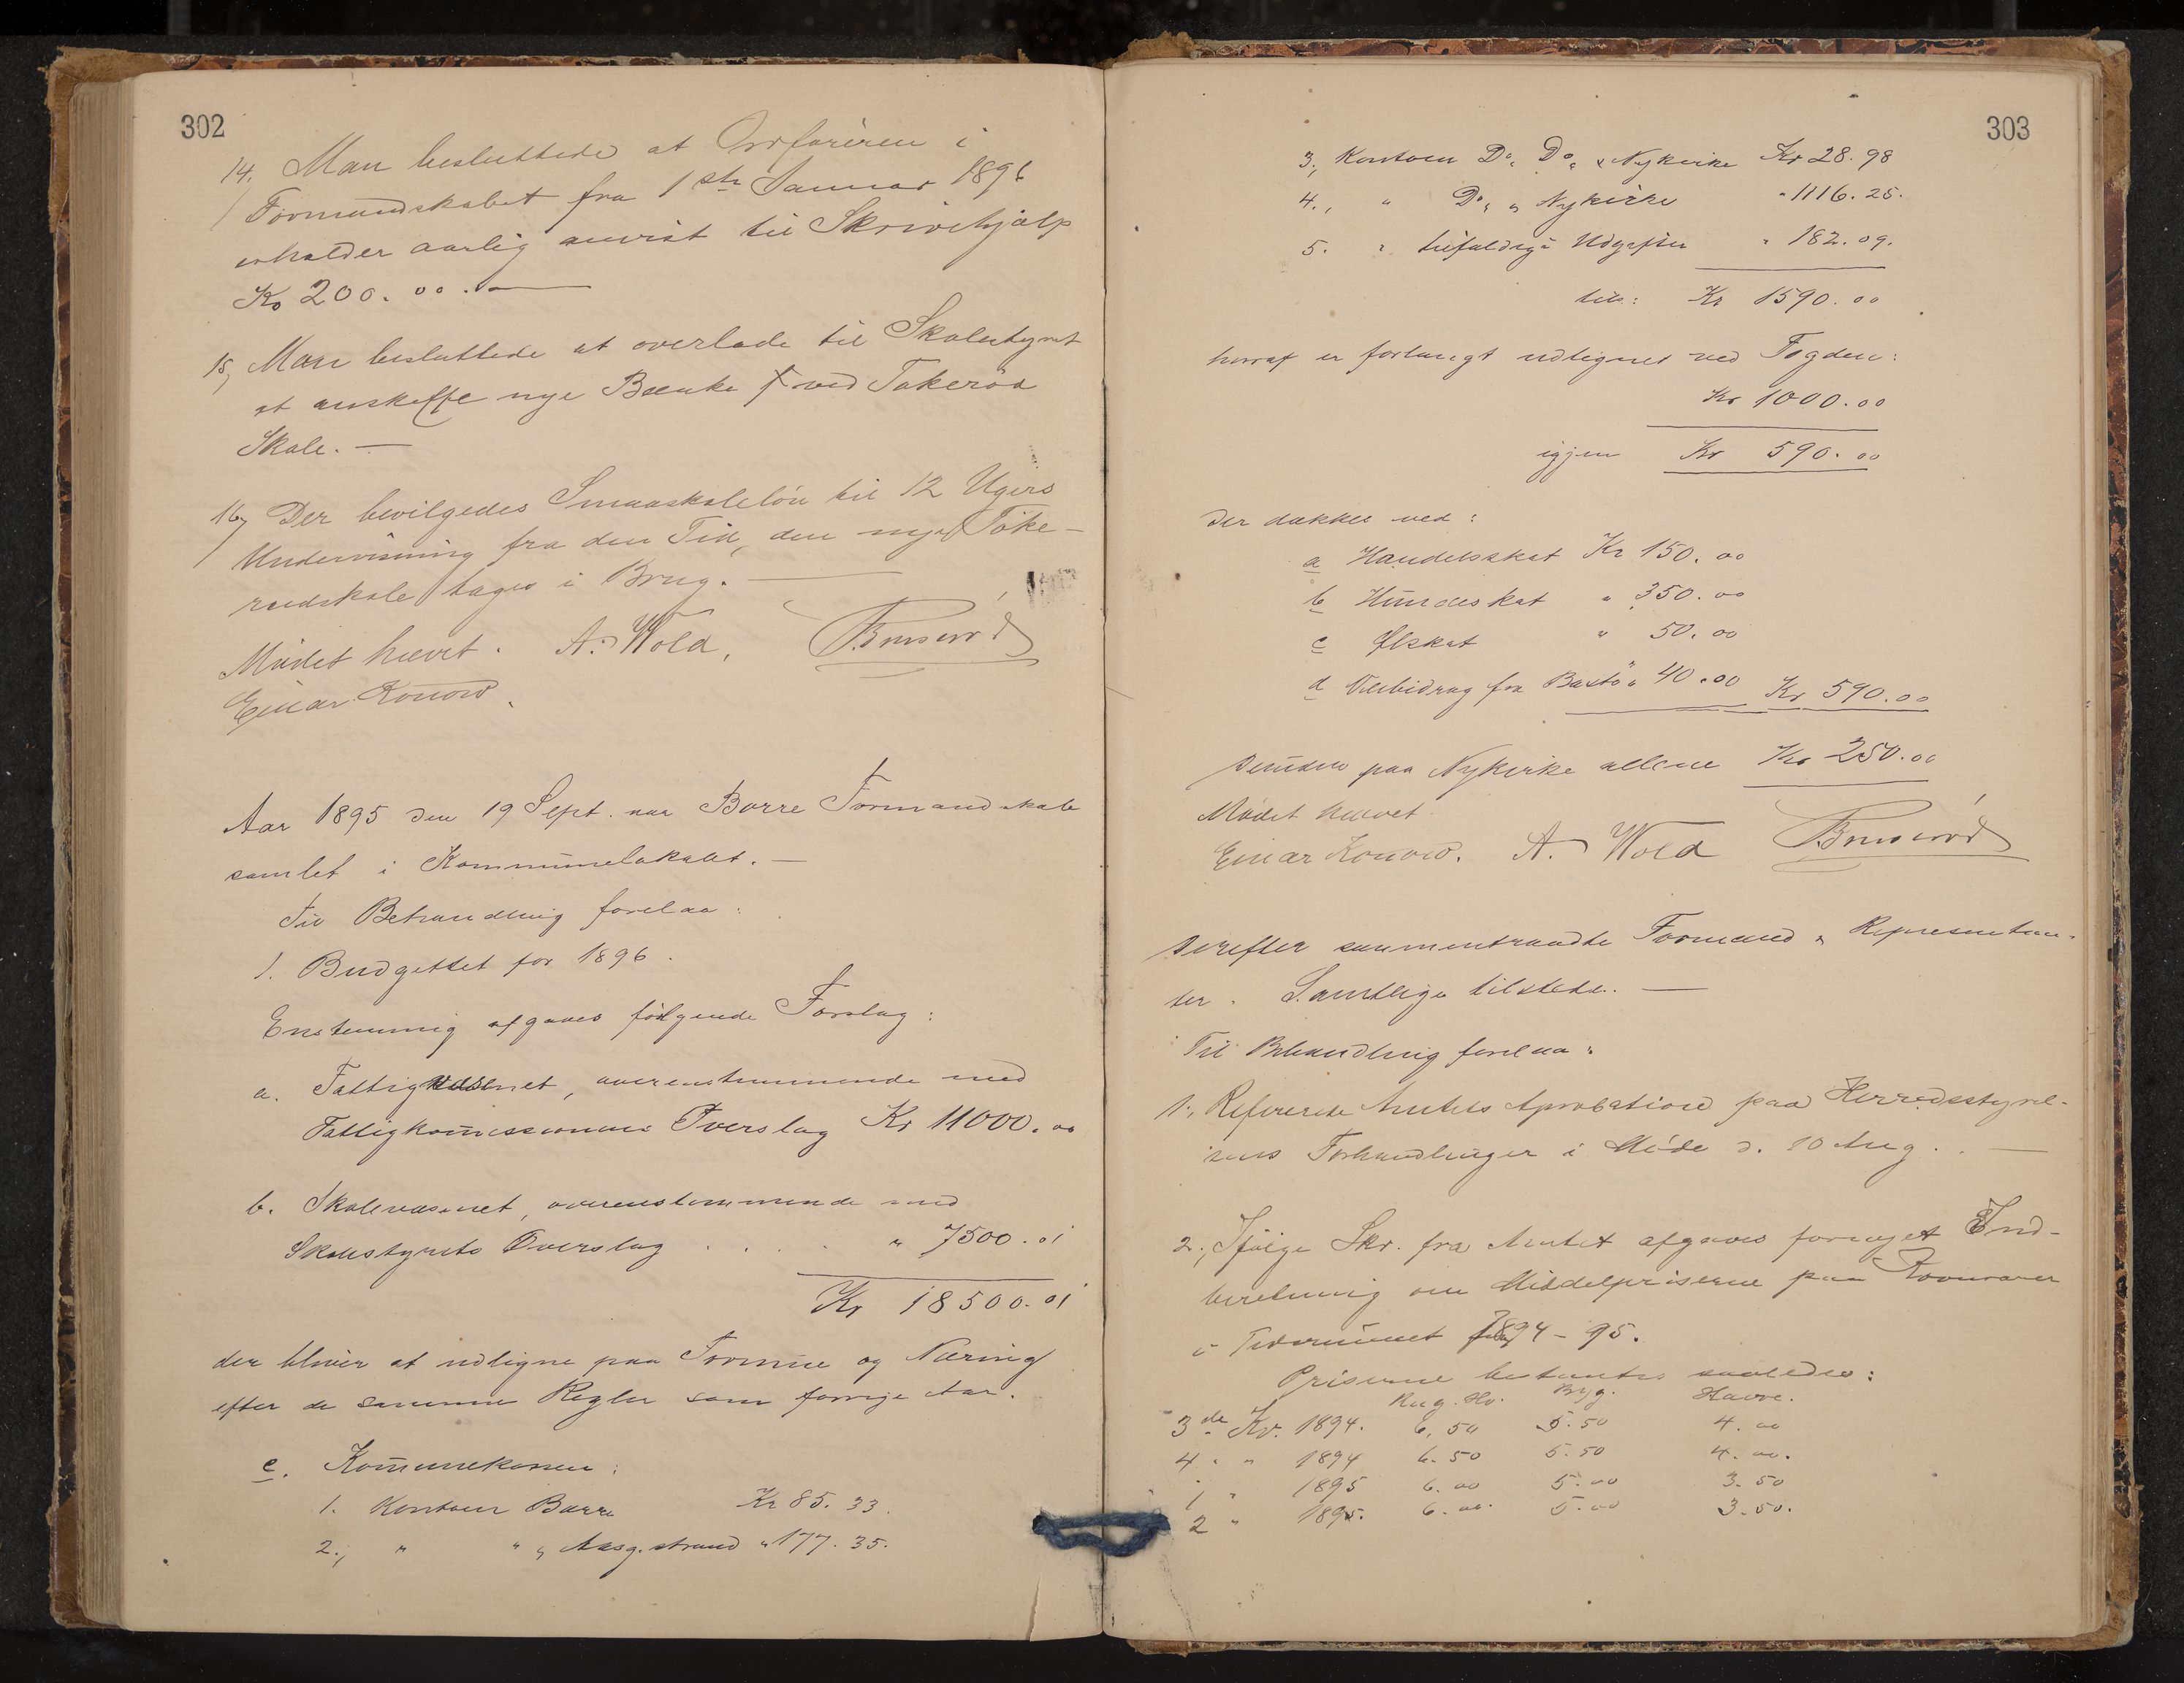 302
14. Man besluttede at Ordføreren i
Formandskabet fra 1ste Januar 1896
erholder aarlig anvist til Skrivehjælp
Kr 200.00.—
15, Man besluttede at overlade til Skolestyret
at anskaffe nye Bænke ved Takerød
Skole.—
16, Der bevilgedes Smaaskoleløn til 12 Ugers
Undervisning fra den Tid, den nye Take-
rødskole tages i Brug.—
Mødet hævet. A. Wold,
Einar Konow.
Aar 1895 den 19 Sept. var Borre Formandskab
samlet i Kommunelokalet.—
Til Behandling forelaa:
1. Budgettet for 1896.
Enstemmig afgaves følgende Forslag:
a. Fattigvæsenet, overenstemmende med
Fattigkomissionens Overslag Kr 11000.00
b. Skolevæsenet, overenstemmende med
Skolestyrets Overslag . . . " 7500.01
Kr 18500.01
der bliver at udligne paa Formue og Næring
efter de samme Regler som forrige Aar.
c. Kommunekassen:
1. Kontoen Borre Kr 85.33.
2., " " " Aasg.strand " 177.35.
303
3., Kontoen Do, Do, & Nykirke Kr 28.98
4., " Do, " Nykirke " 1116.25.
5. " tilfældige Udgifter " 182.09.
tils: Kr 1590.00
hvoraf er forlangt udlignet ved Fogden:
Kr 1000.00
igjen Kr 590.00
der dækkes ved:
a Handelsskat Kr 150.00
b Hundeskat " 350.00
c Ølskat " 50.00
d Veibidrag fra Bastø " 40.00 Kr 590.00
Desuden paa Nykirke allene Kr 250.00
Mødet hævet.
Einar Konow. A. Wold
Derefter sammentraadte Formænd & Representan-
ter. Samtlige tilstede.—
Til Behandling forelaa:
1., Refererede Amtets Aprobation paa Herredsstyrel-
sens Forhandlinger i Møde d. 10 Aug.—
2., Ifølge Skr. fra Amtet afgaves fornyet Ind-
beretning om Middelpriserne paa Kornvarer
i Tidsrummet 1894-95.
Priserne bestemtes saaledes:
Rug. Hv. Byg. Havre.
3de Kv. 1894. 6,50 5.50 4.00
4 " " 1894 6.50 5.50 4.00.
1 " 1895 6.00 5.00 3.50
2 " 1895. 6.00. 5.00 3.50.